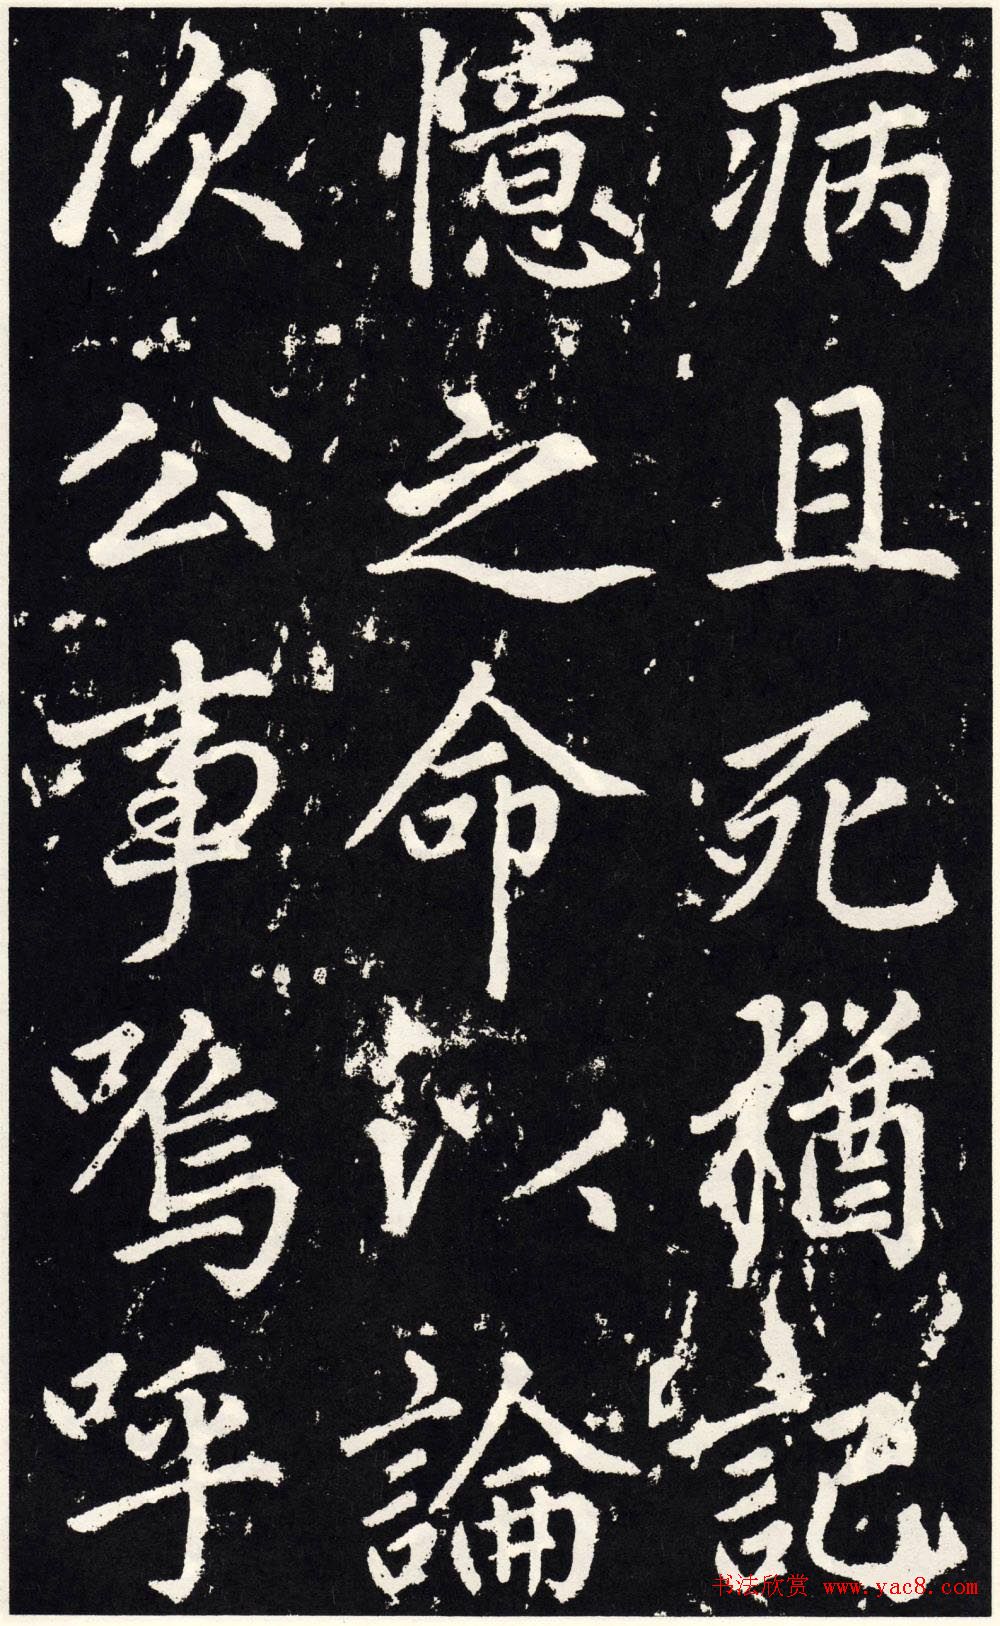 病且死猶記
憶之命以論
次公事嗚呼
书法欣赏 www.yac8.com